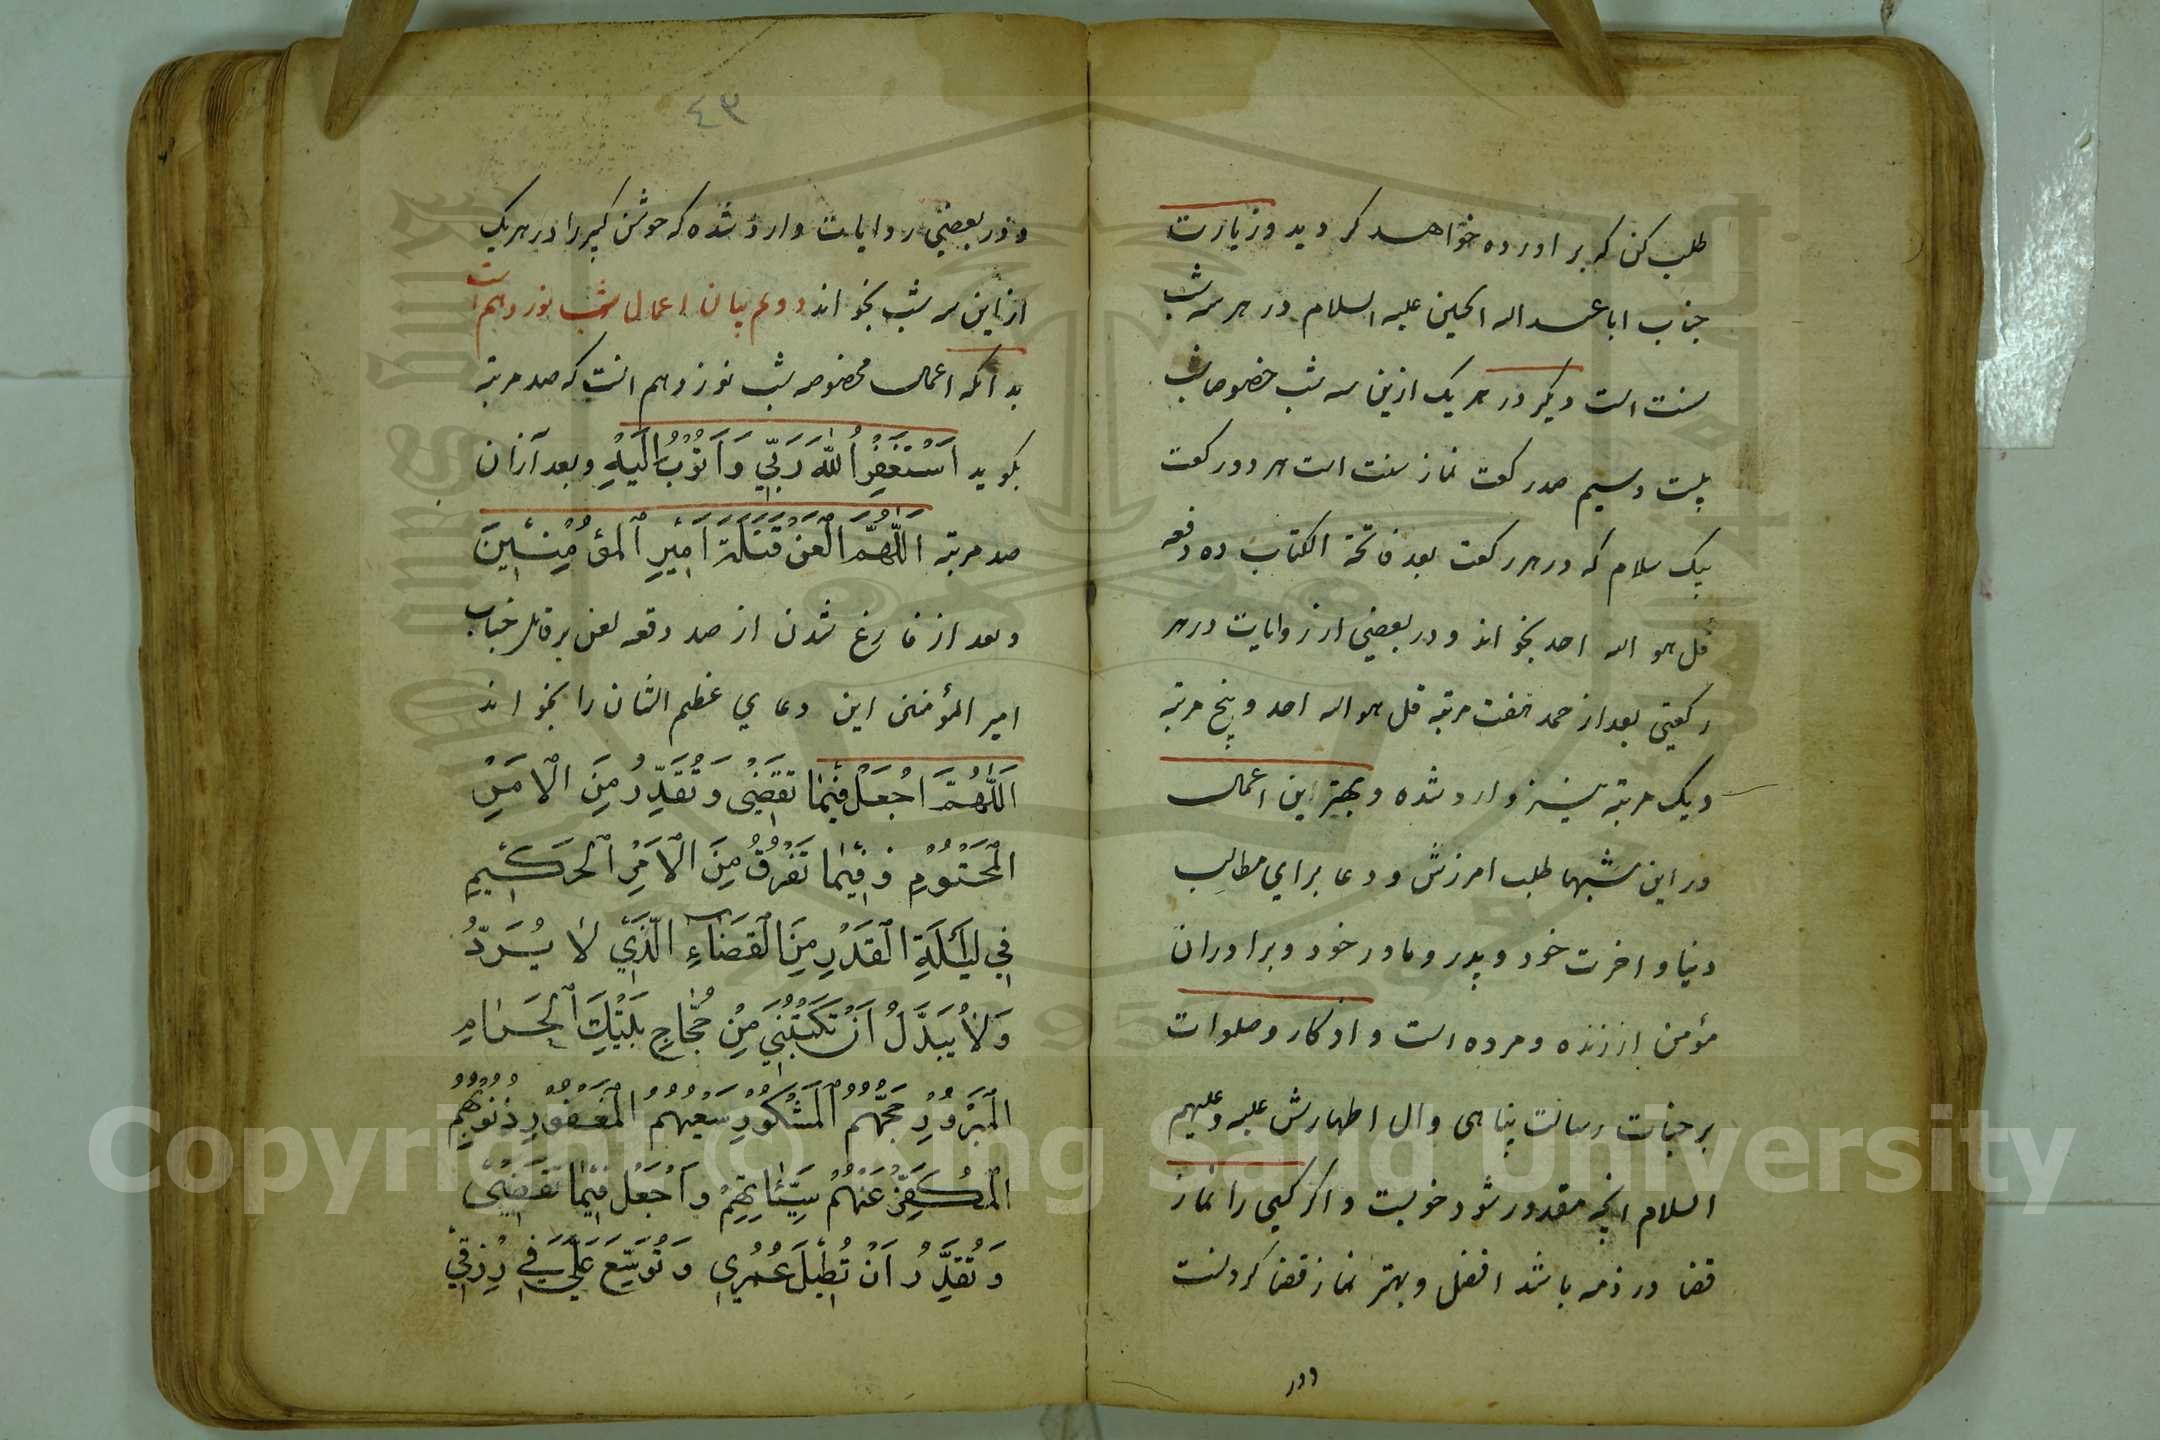 طلب کن که بر اورده خواهد کردید و زیارت
جناب ابا عبد اله الحسین علیه السلام در هر سه شب
سنت است دیکر در هر یک ازین سه شب خصوصا شب
بیست و سیم صد رکعت نماز سنت است هر دو رکعت
بیک سلام که در هر رکعت بعد فاتحة الکتاب ده دفعه
قل هو اله احد بخواند و در بعضی از روایات در هر
رکعتی بعد از حمد هفت مرتبه قل هو اله احد و پنج مرتبه
و یک مرتبه نیز وارد شده و بهترین اعمال
در این شبها طلب امرزش و دعا برای مطالب
دنیا و اخرت خود و پدر و مادر خود و برادران
مؤمن از زنده و مرده است و اذکار و صلوات
بر جناب رسالت پناهی و ال اطهارش علیه و علیهم
السلام انچه مقدور شود خوبست و اکر کسی را نماز
قضا در ذمه باشد افضل و بهتر نماز قضا کردنست
ودر
٤٣
و در بعضی روایات وارد شده که جوشن کبیر را در هر یک
از این سه شب بخواند دوم بیان اعمال شب نوزدهم است
بدانکه اعمال مخصوصه شب نوزدهم انست که صد مرتبه
بکوید اَسْتَغْفِرُ اللّٰهَ رَبّي وَاَتُوْبُ اِلَيْهِ و بعد از ان
صد مرتبه اَللّٰهُمَّ الْعَنْ قَتَلَةَ اَمِيْرِ الْمُؤْمِنِيْنَ
و بعد از فارغ شدن از صد دفعه لعن بر قاتل جناب
امیر المؤمنین این دعای عظیم الشان را بخواند
اَللّٰهُمَّ اجْعَلْ فِيْمَا تَقْضِيْ وَتُقَدِّرُ مِنَ الْاَمْرِ
الْمَحْتُوْمِ وَفِيْمَا تَفْرُقُ مِنَ الْاَمْرِ الْحَكِيْمِ
فِي لَيْلَةِ الْقَدْرِ مِنَ الْقَضَاءِ الَّذِي لَا يُرَدُّ
وَلَا يُبَدَّلُ اَنْ تَكْتُبَنِيْ مِنْ حُجَّاجِ بَيْتِكَ الْحَرَامِ
الْمَبْرُوْرِ حَجُّهُمُ الْمَشْكُوْرِ سَعْيُهُمُ الْمَغْفُوْرِ ذُنُوْبُهُمُ
الْمُكَفَّرِ عَنْهُمْ سَيِّئَاتُهُمْ وَاجْعَلْ فِيْمَا تَقْضِيْ
وَتُقَدِّرُ اَنْ تُطِيْلَ عُمُرِي وَتُوَسِّعَ عَلَيَّ فِي رِزْقِي
Copyright © King Saud University